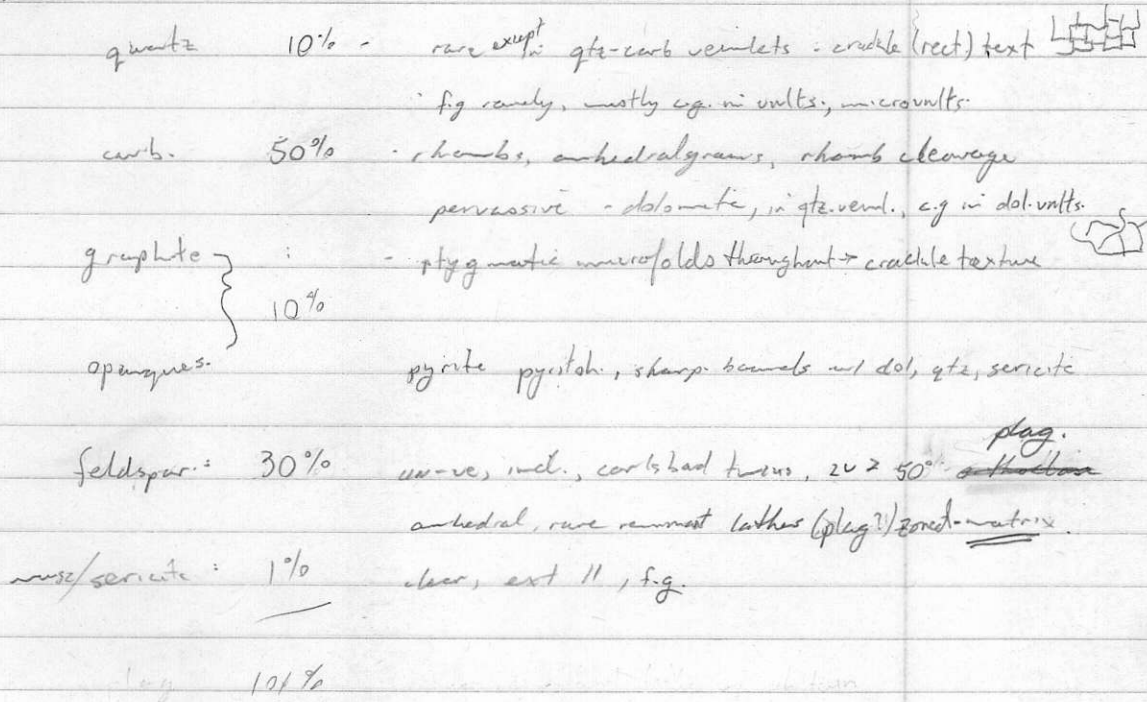 quartz 10% - rare except in qtz-carb veinlets : crackle (rect) text
f.g rarely, mostly c.g. in vnlts., microvnlts.
carb. 50% - rhombs, anhedral grains, rhomb cleavage
pervassive - dolomite, in qtz.veinl., c.g in dol.vnlts.
graphite : - ptygmatic microfolds throughout → crackle texture
10%
opaques. pyrite pyritoh., sharp. bounds w/ dol, qtz, sericite
plag.
feldspar : 30% un-ve, incl., carlsbad twins, 2V > 50°
anhedral, rare remnant lathes (plag?!) zoned-matrix.
musc/sericite : 1% clear, ext //, f.g.
101%